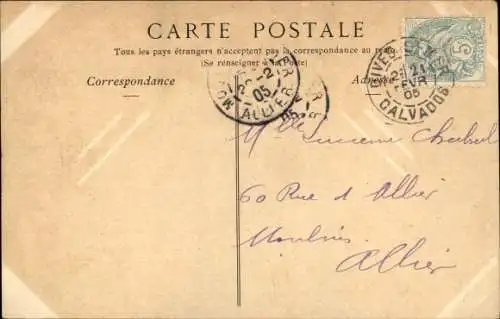 CARTE POSTALE
Tous les pays étrangers n'acceptent pas la correspondance au
(Se renseigner à la Poste)
Correspondance
05
ALLIER
5
05
CALVADOS
Mlle Lucienne
60 Rue d'Allier
Moulins
Allier